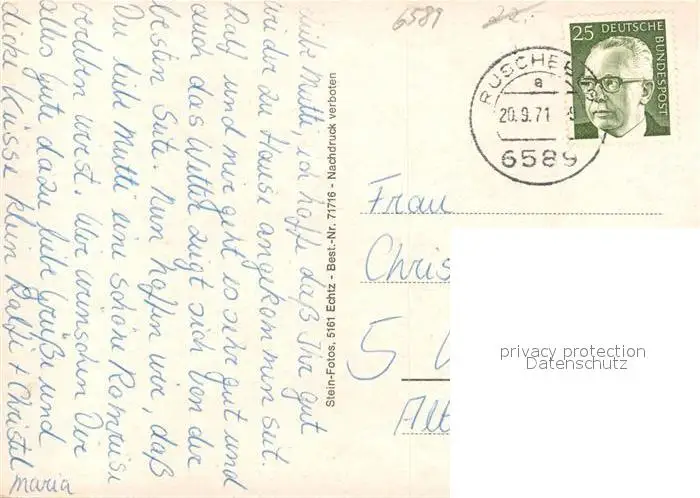 liebe Mutti, ich hoffe daß Ihr gut
wieder zu Hause angekommen seit.
Ralf und mir geht es sehr gut und
auch das Wetter zeigt sich von der
besten Seite. Nun hoffen wir, daß
Du liebe Mutti eine schöne Romreise
verleben wirst. Wir wünschen Dir
alles gute dazu liebe Grüße und
dicke Küsse klein Ralfi + Christel
maria
Stein-Fotos, 5161 Echtz - Best.-Nr. 71716 - Nachdruck verboten
6589
20.-
25 DEUTSCHE BUNDESPOST
a
20.9.71
6589
Frau
Chris
5
Alt
privacy protection
Datenschutz